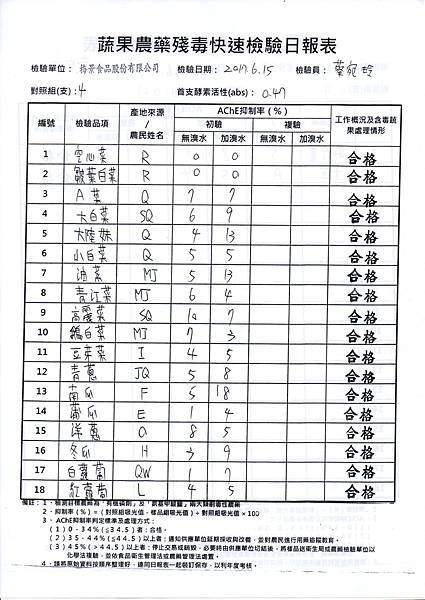 蔬果農藥殘毒快速檢驗日報表
檢驗單位： 裕景食品股份有限公司 檢驗日期： 2017.6.15 檢驗員：
對照組(支)：4 首支酵素活性(abs)： 0.47
編號 檢驗品項 產地來源/農民姓名 AChE抑制率(%) 工作概況及含毒蔬果處理情形
初驗 複驗
無溴水 加溴水 無溴水 加溴水
1 空心菜 R 0 0 合格
2 皺葉白菜 R 0 0 合格
3 A菜 Q 7 7 合格
4 大白菜 SQ 6 9 合格
5 大陸妹 Q 4 13 合格
6 小白菜 Q 5 5 合格
7 油菜 MJ 5 13 合格
8 青江菜 MJ 6 4 合格
9 高麗菜 SQ 10 7 合格
10 鵝白菜 MJ 7 3 合格
11 豆芽菜 I 4 5 合格
12 青蔥 JQ 5 8 合格
13 南瓜 F 5 18 合格
14 葡瓜 E 1 4 合格
15 洋蔥 a 8 5 合格
16 冬瓜 H 3 9 合格
17 白蘿蔔 QW 1 7 合格
18 紅蘿蔔 L 4 5 合格
備註：1、檢測目標農藥為「有機磷劑」及「氨基甲酸鹽」兩大類劇毒性農藥
2、抑制率(%)＝(對照組吸光值－樣品組吸光值)÷對照組吸光值×100
3、AChE抑制率判定標準及處理方式：
(1) 0-34% (≦34.5) 者：合格。
(2) 35-44% (≦44.5) 以上者：通知供應單位延期採收與改善，並對農民進行用藥追蹤教育。
(3) 45% (＞44.5) 以上者：停止交易或銷毀，必要時由供應單位切結後，將樣品送衛生局或農藥檢驗單位以
化學法複驗，並依食品衛生管理法或農藥管理法處置。
4、請將原始資料按順序整理好，連同日報表一起裝訂保存，以利年度考核。